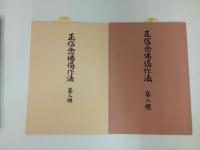 正信念佛偈作法
第二種
正信念佛偈作法
第三種